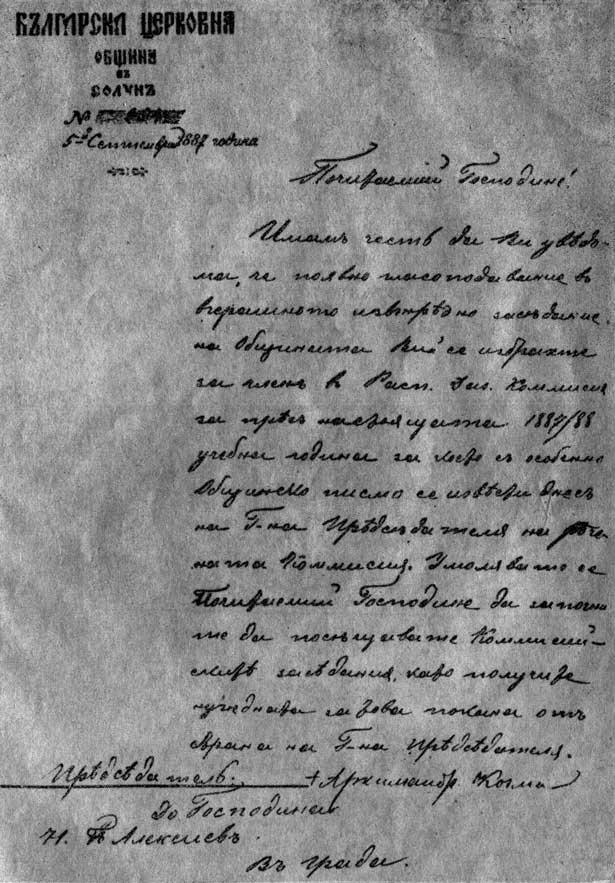 БЪЛГАРСКА ЦЕРКОВНА
ОБЩИНА
ВЪ
СОЛУНЪ
№
5й Септемврий 1887 година
Почитаемий Господине!
Имамъ честь да Ви увѣдо-
ма, че появно гласоподавание в
вчерашното извънрѣдно засѣдание
на Общината Вий се избрахте
за членъ в Расп. Коммисия
за прѣз настоящата 1887/88
учебна година за което съ особенно
Общинско писмо се извѣсти днесъ
на Г-на Прѣдсѣдателя на рѣче-
ната Коммисия. Умолявате се
Почитаемий Господине да започне
те да посѣщавате Коммисий-
скитѣ засѣдания, като получите
нуждната за това покана отъ
страна на Г-на Прѣдсѣдателя.
Прѣдсѣдатель: + Архимандр. Козма
До Господина
Алексиевъ
Въ града.